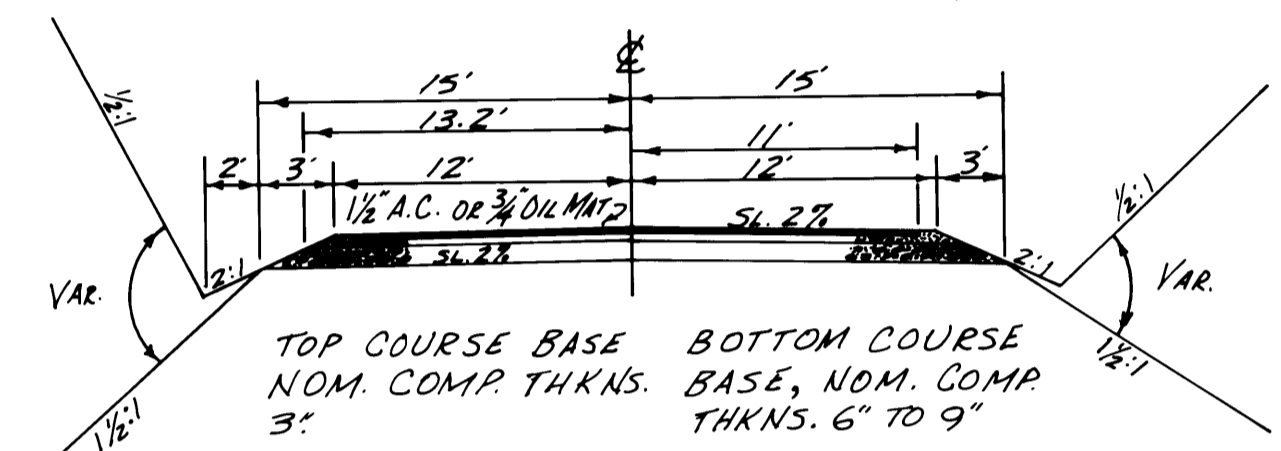 ℄
15' 15'
13.2' 11'
2' 3' 12' 12' 3'
1½" A.C. OR ¾" OIL MAT SL. 2%
SL. 2%
½:1 ½:1
2:1 2:1
VAR. VAR.
1½:1 1½:1
TOP COURSE BASE
NOM. COMP. THKNS.
3".
BOTTOM COURSE
BASE, NOM. COMP.
THKNS. 6" TO 9"